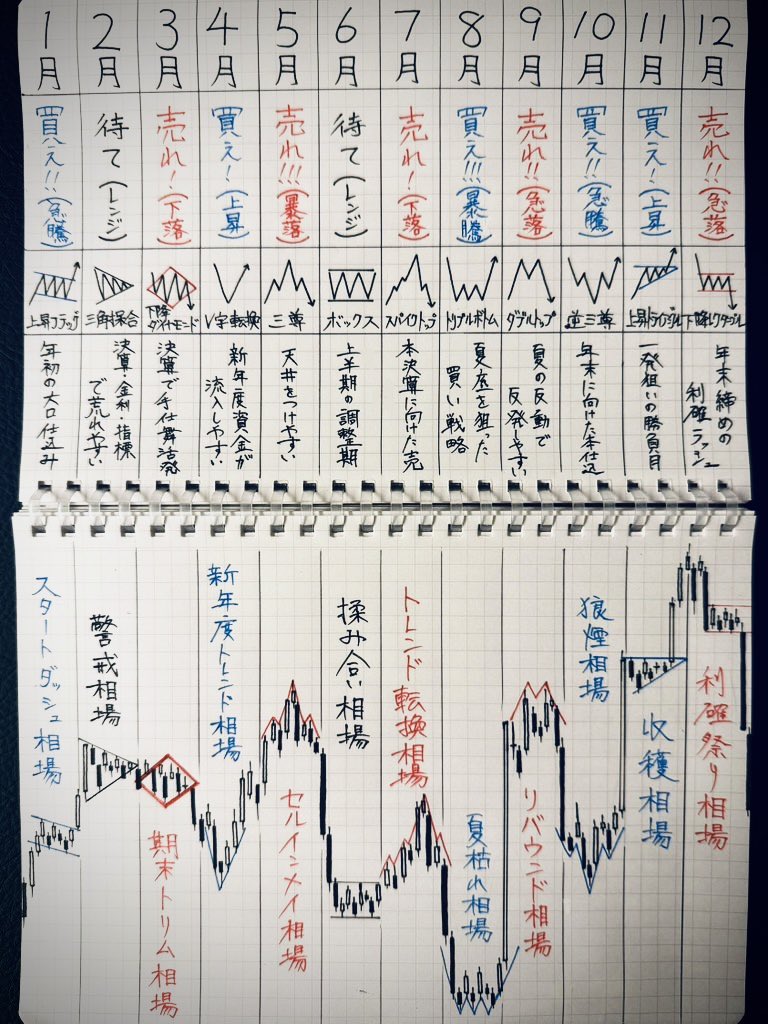 1月
2月
3月
4月
5月
6月
7月
8月
9月
10月
11月
12月
買え!!(急騰)
待て(レンジ)
売れ!(下落)
買え!(上昇)
売れ!!!(暴落)
待て(レンジ)
売れ!(下落)
買え!!!(暴騰)
売れ!!(急落)
買え!!(急騰)
買え!(上昇)
売れ!!(急落)
上昇フラッグ
三角保合
下降
ダイヤモンド
V字転換
三尊
ボックス
スパイクトップ
トリプルボトム
ダブルトップ
逆三尊
上昇トライアングル
下降レクタングル
年初の大口仕込み
決算・金利・指標
で荒れやすい
決算で手仕舞活発
新年度資金が
流入しやすい
天井をつけやすい
上半期の調整期
本決算に向けた売
夏底を狙った
買い戦略
夏の反動で
反発しやすい
年末に向けた本仕込
一発狙いの勝負月
年末締めの
利確ラッシュ
スタートダッシュ相場
警戒相場
期末トリム相場
新年度トレンド相場
セルインメイ相場
揉み合い相場
トレンド転換相場
夏枯れ相場
リバウンド相場
狼煙相場
収穫相場
利確祭り相場